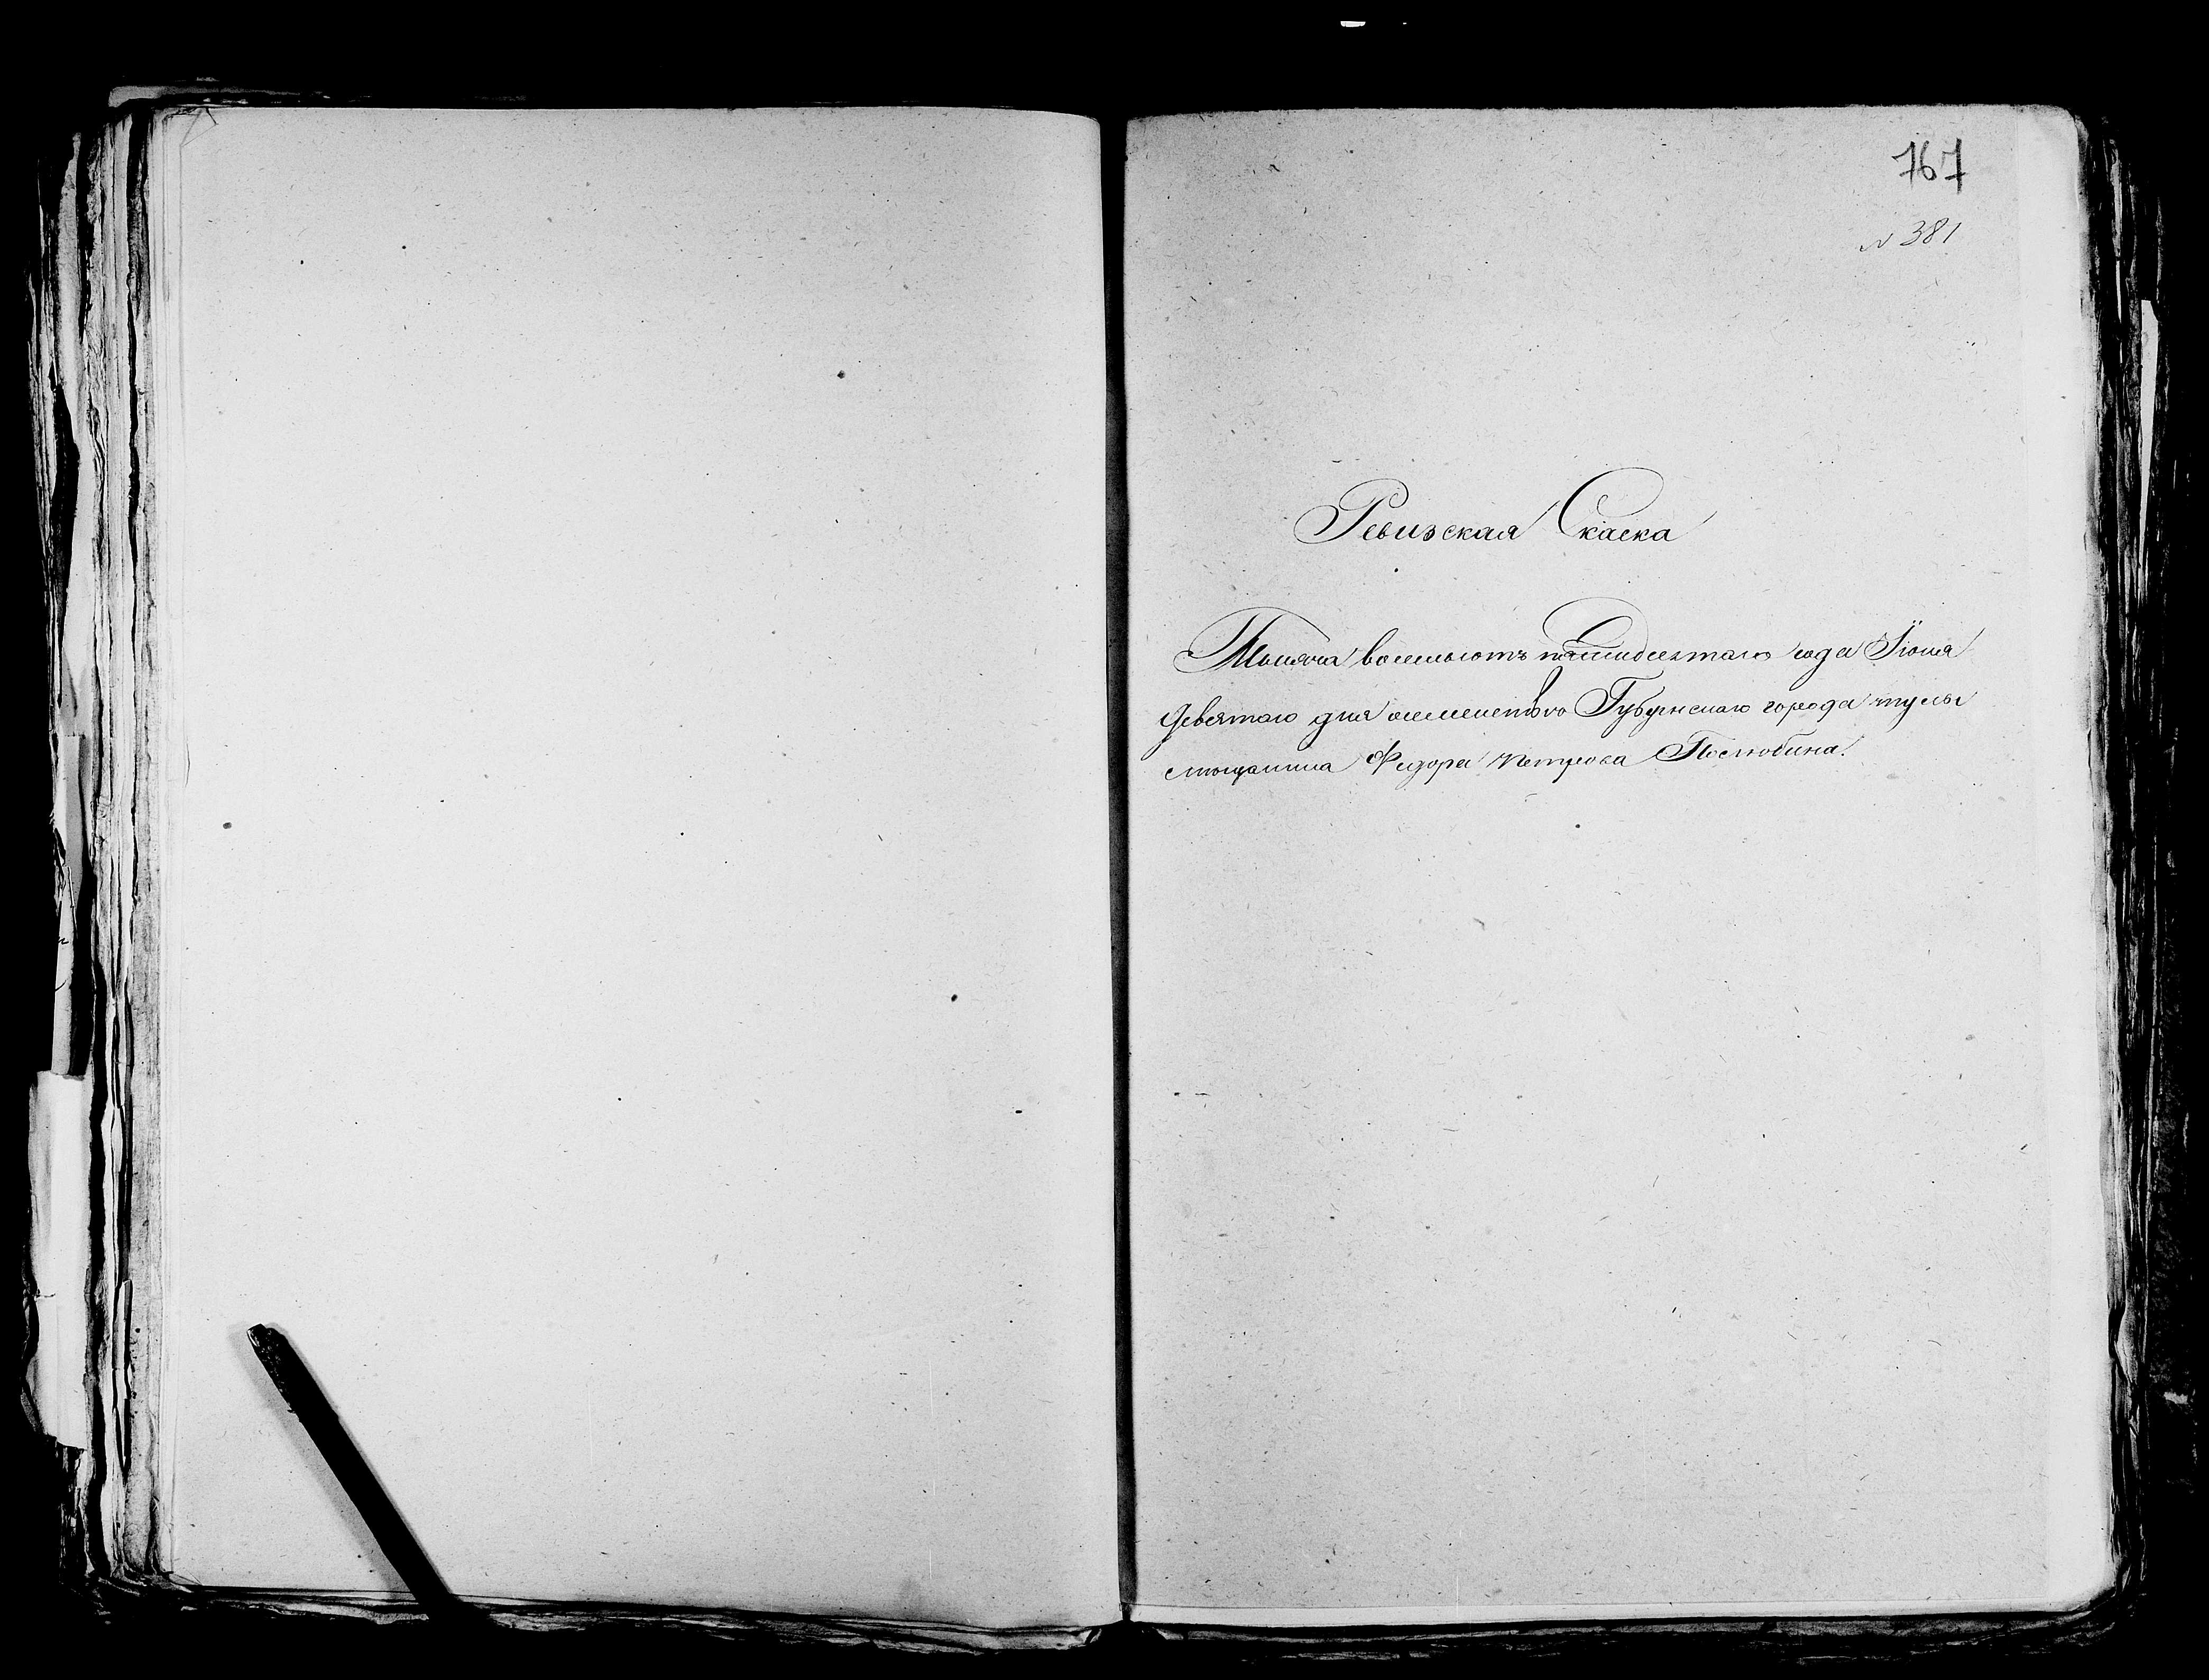 767
N 381
Ревизская Скаска
Тысяча восемьсотъ пятидесятаго года Іюня
Девятаго дня Губернскаго города тулы
мещанина Федора петрова Послюбина.